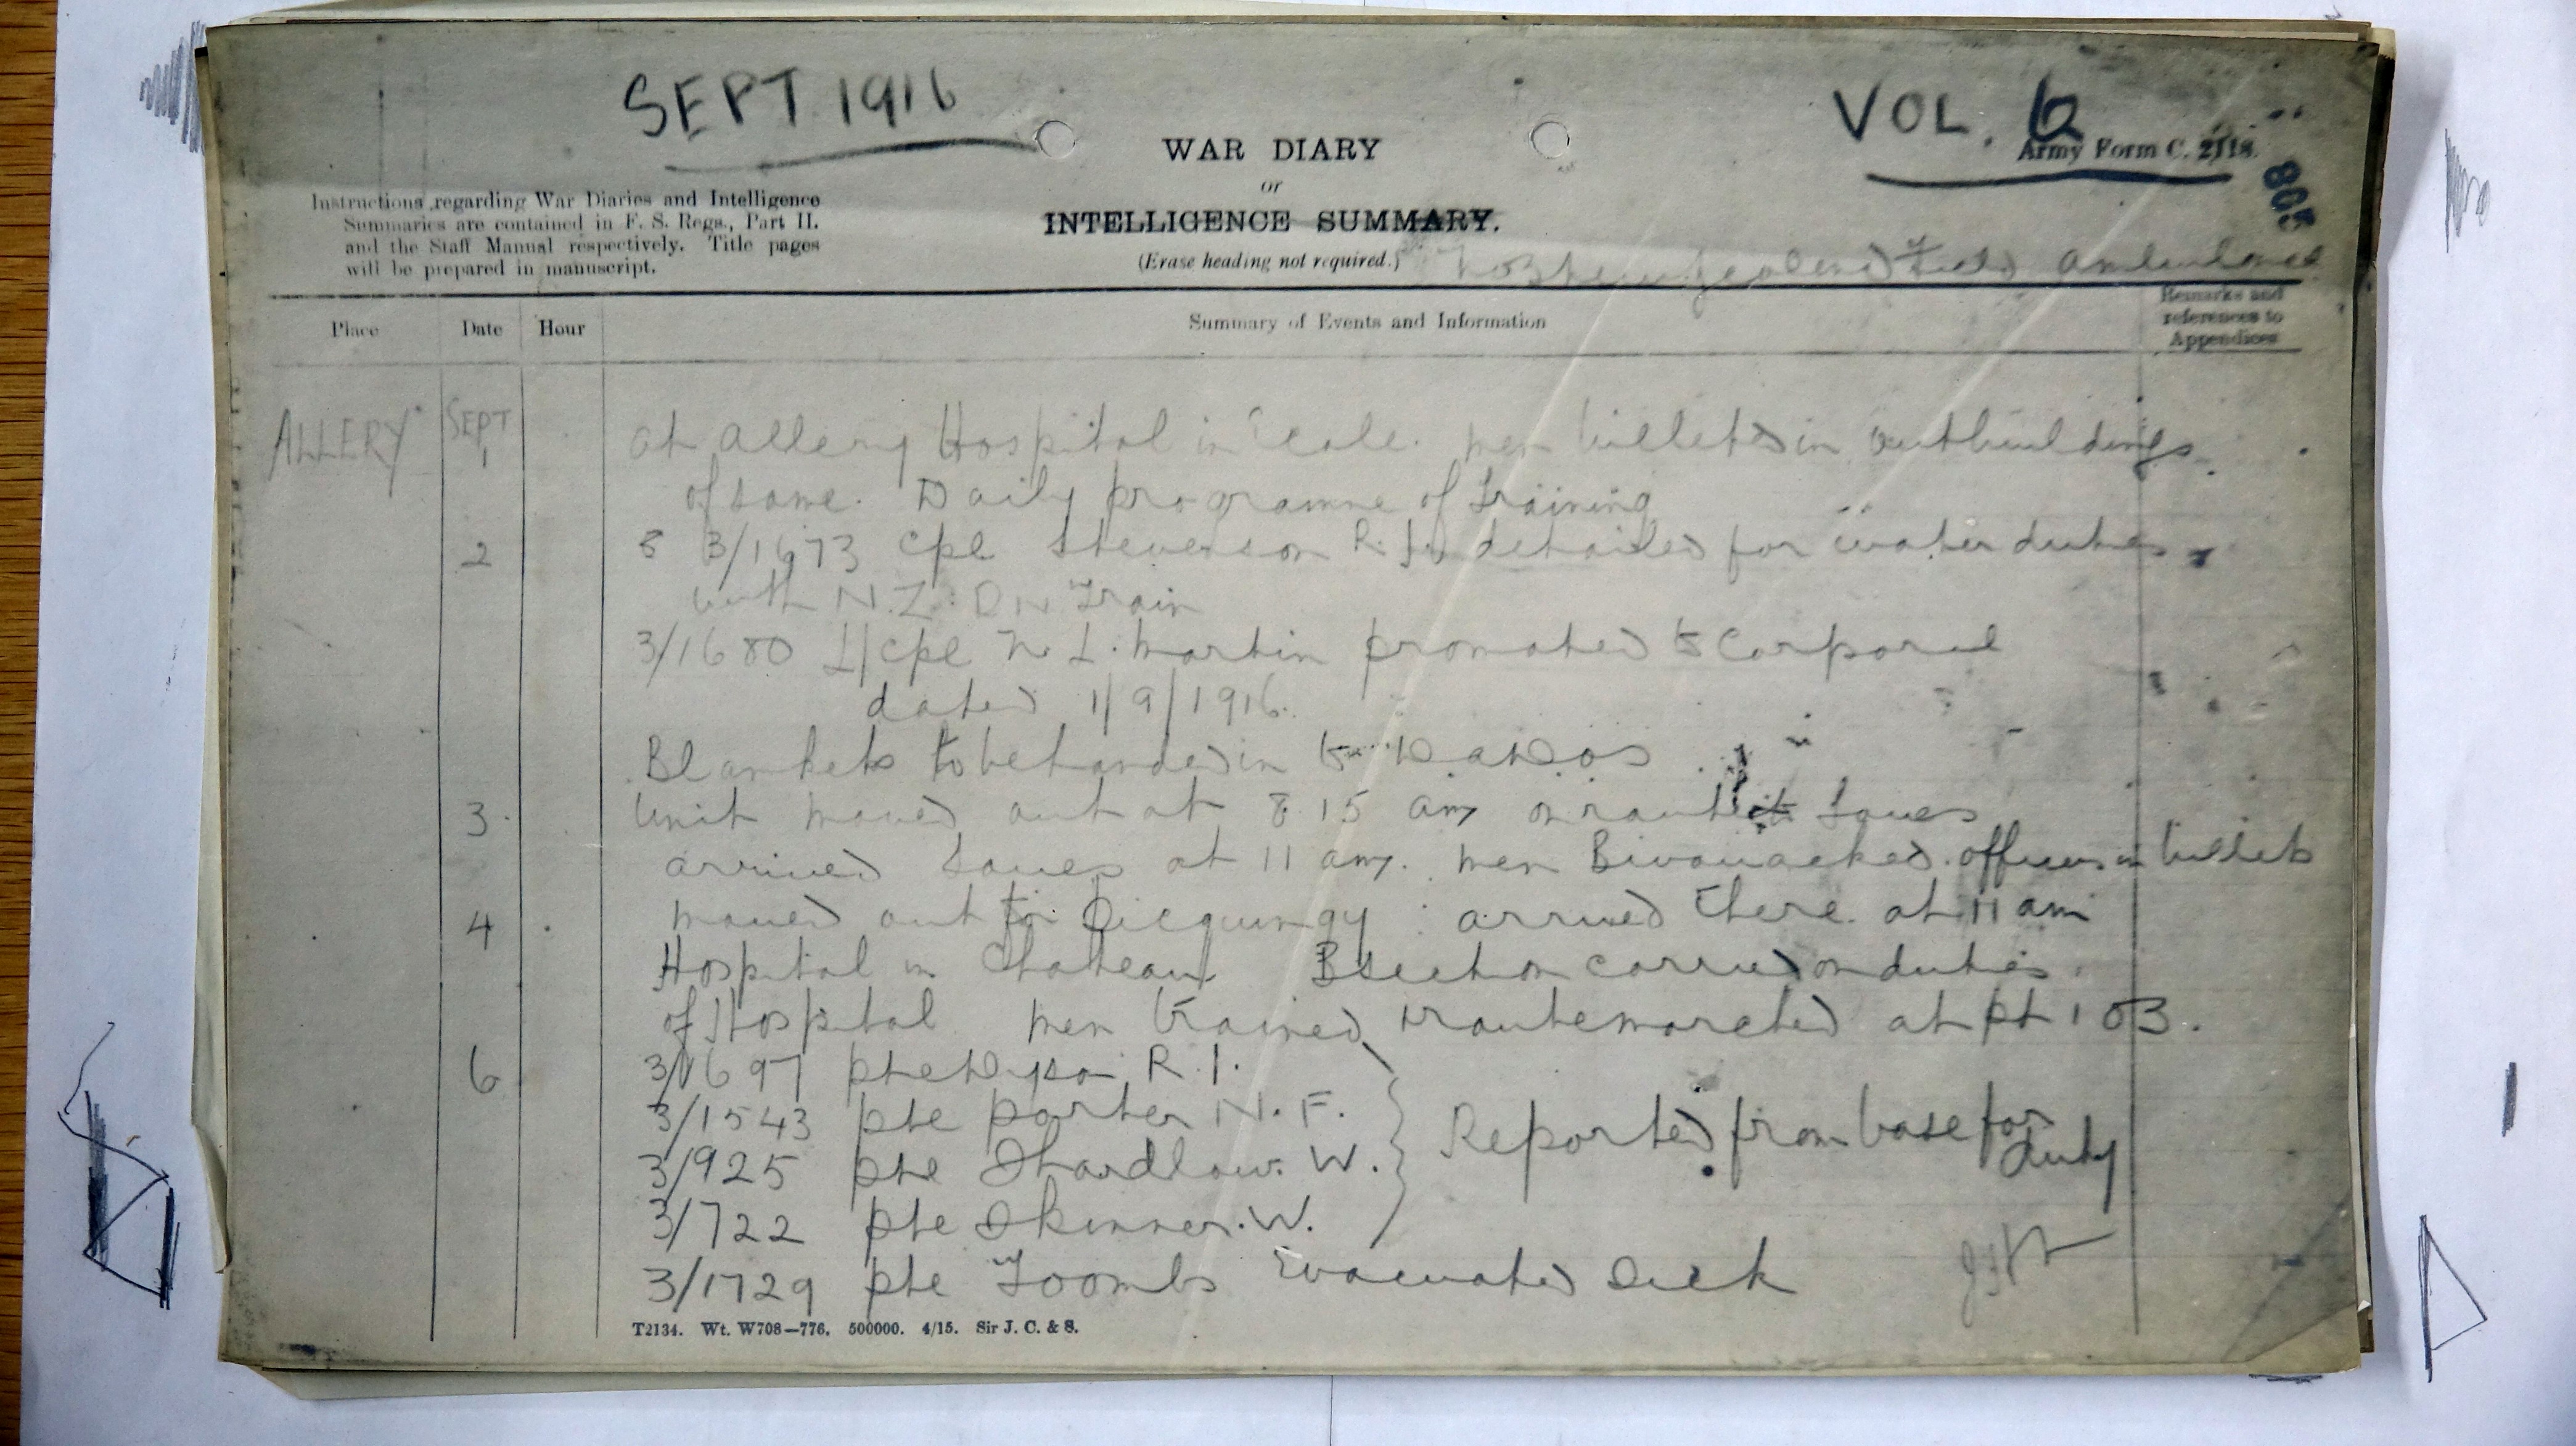 SEPT 1916
VOL. 6
Army Form C. 2118.
805
WAR DIARY
or
INTELLIGENCE SUMMARY.
(Erase heading not required.)
Instructions regarding War Diaries and Intelligence
Summaries are contained in F. S. Regs., Part II.
and the Staff Manual respectively. Title pages
will be prepared in manuscript.
No 3 New Zealand Field Ambulance
Place Date Hour Summary of Events and Information Remarks and
references to
Appendices
ALLERY SEPT
1 at Allery Hospital in Ecole. men billeted in outbuildings
of same. Daily programme of training
2 3/1673 Cpl Stevenson R. J. detailed for water duties
with N.Z. DN Train
3/1680 L/Cpl N. L. Martin promoted to Corporal
dated 1/9/1916.
Blankets to be handed in to D.A.D.O.S
3. Unit moved out at 8.15 am enroute Soues
arrived Soues at 11 am. men Bivouacked. officers in billets
4 moved out for Picquigny : arrived there at 11 am
Hospital in Chateau B section carried on duties
of Hospital men trained routemarched at pt 103.
6 3/1697 pte Dyson R. I.
3/1543 pte Porter N. F.
3/925 pte Shardlow. W.
3/722 pte Skinner. W.
Reported from base for
duty
3/1729 pte Toombs Evacuated Sick
T2134. Wt. W708—776. 500000. 4/15. Sir J. C. & S.